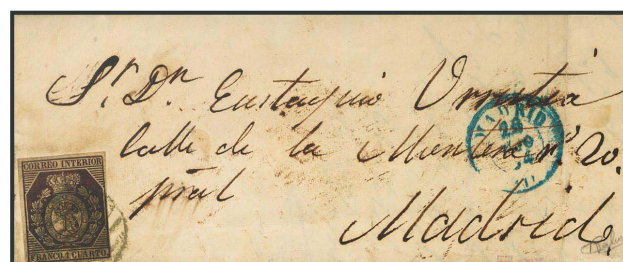 Sr. Dn. Eustaquio Urrutia
Calle de la Montera nº 20.
pral
Madrid.
MADRID
CORREO INTERIOR
FRANCO 1 CUARTO